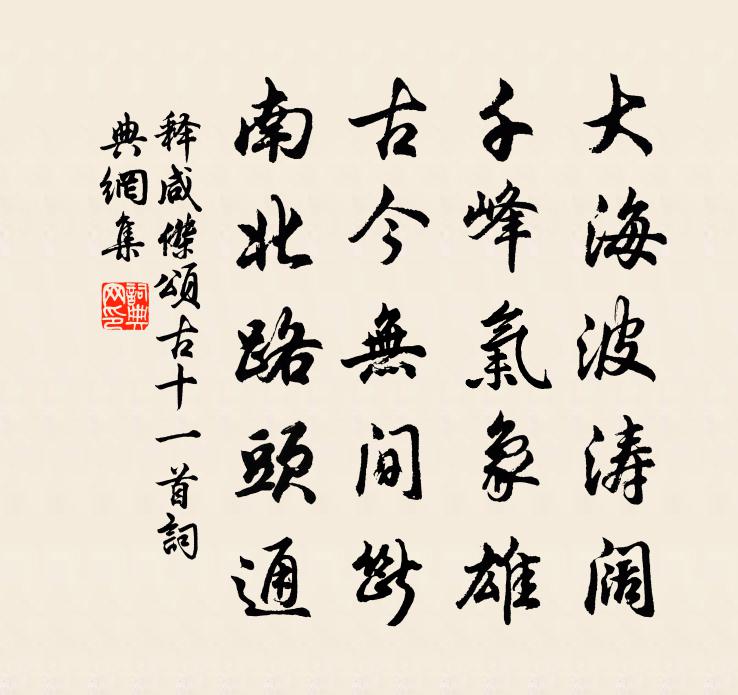 大海波涛阔
千峰氣象雄
古今無间斷
南北路頭通
释咸傑頌古十一首詞
典網集
詞典网印